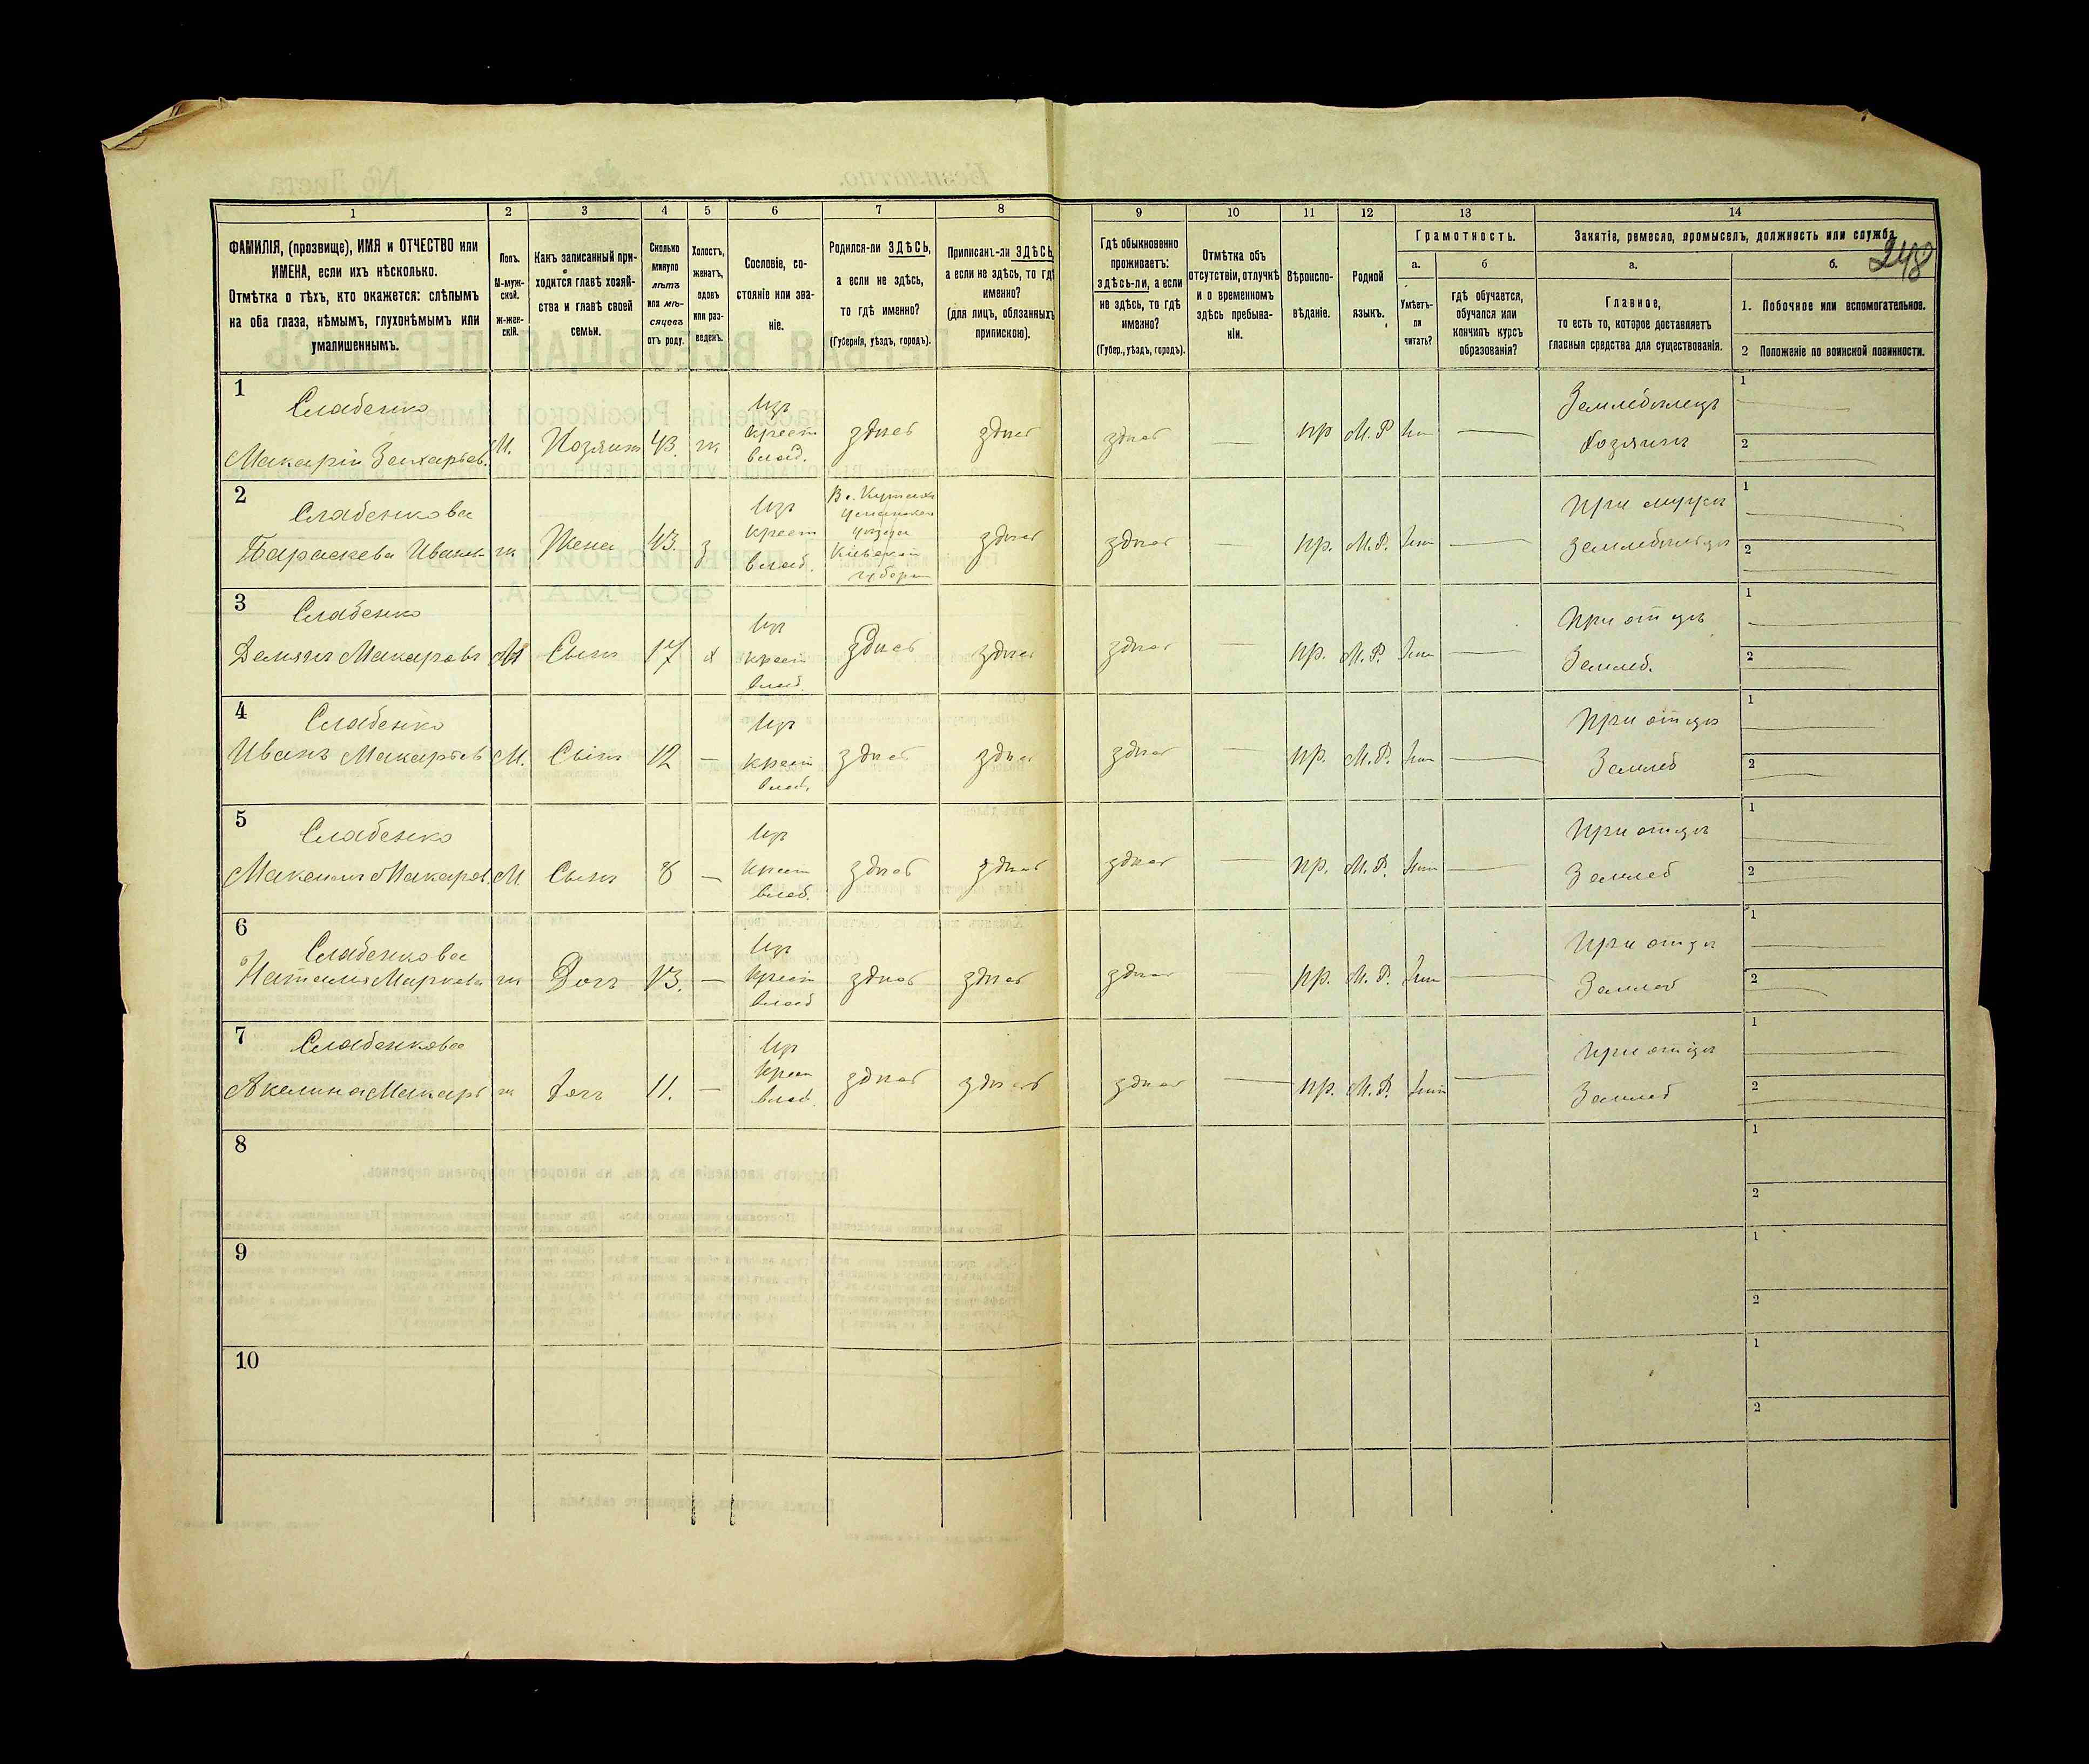 1 2 3 4 5 6 7 8 9 10 11 12 13 14
ФАМИЛІЯ, (прозвище), ИМЯ и ОТЧЕСТВО или
ИМЕНА, если ихъ нѣсколько.
Отмѣтка о тѣхъ, кто окажется: слѣпымъ
на оба глаза, нѣмымъ, глухонѣмымъ или
умалишеннымъ.
Полъ.
М-муж-
ской.
ж-жен-
скій.
Какъ записанный при-
ходится главѣ хозяй-
ства и главѣ своей
семьи.
Сколько
минуло
лѣтъ
или мѣ-
сяцевъ
отъ роду.
Холостъ,
женатъ,
вдовъ
или раз-
веденъ.
Сословіе, со-
стояніе или зва-
ніе.
Родился-ли ЗДѢСЬ,
а если не здѣсь,
то гдѣ именно?
(Губернія, уѣздъ, городъ).
Приписанъ-ли ЗДѢСЬ,
а если не здѣсь, то гдѣ
именно?
(для лицъ, обязанныхъ
припискою).
Гдѣ обыкновенно
проживаетъ:
здѣсь-ли, а если
не здѣсь, то гдѣ
именно?
(Губер., уѣздъ, городъ).
Отмѣтка объ
отсутствіи, отлучкѣ
и о временномъ
здѣсь пребыва-
ніи.
Вѣроиспо-
вѣданіе.
Родной
языкъ.
Грамотность.
а.
Умѣетъ-
ли
читать?
б
гдѣ обучается,
обучался или
кончилъ курсъ
образованія?
Занятіе, ремесло, промыселъ, должность или служба
248
а.
Главное,
то есть то, которое доставляетъ
главныя средства для существованія.
б.
1. Побочное или вспомогательное.
2 Положеніе по воинской повинности.
1
Слабенко
Макарій Захарьев.
М. Хозяин 43. ж
Изъ
крест
влад.
здѣсь здѣсь здѣсь — пр М. Р —
Земледѣлецъ
Хозяинъ
1
2
2
Слабенкова
Параскева Иван.
ж Жена 43. з
Изъ
крест
влад.
Уманскаго
уѣзда
Кіевской
губерн
здѣсь здѣсь — пр. М. Р. —
При мужѣ
Земледѣльцѣ
1
2
3
Слабенко
Демянъ Макаровъ
М Сынъ 17 х
Изъ
крест
влад.
здѣсь здѣсь здѣсь — пр. М. Р. —
При отцѣ
Землед.
1
2
4
Слабенко
Иванъ Макарьев
М. Сынъ 12 —
Изъ
крест
влад.
здѣсь здѣсь здѣсь — пр. М. Р. —
При отцѣ
Землед
1
2
5
Слабенко
Максимъ Макаров.
М. Сынъ 8 —
Изъ
крест
влад.
здѣсь здѣсь здѣсь — пр. М. Р. —
При отцѣ
Землед
1
2
6
Слабенкова
Наталія Маркова
ж Дочь 13. —
Изъ
крест
влад
здѣсь здѣсь здѣсь пр. М. Р. —
При отцѣ
Землед
1
2
7
Слабенкова
Акелина Макарь
ж дочь 11. —
Изъ
крест
влад.
здѣсь здѣсь здѣсь — пр. М. Р. —
При отцѣ
Землед
1
2
8
1
2
9
1
2
10
1
2